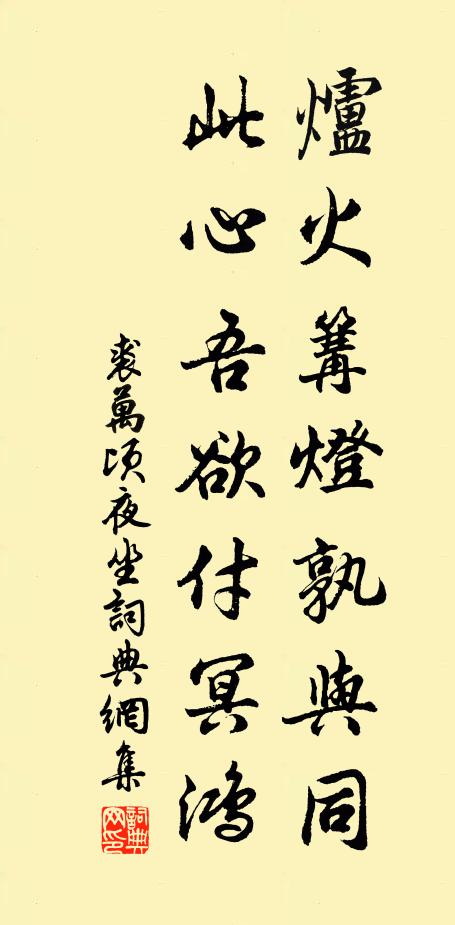 爐火篝燈孰與同
此心吾欲付冥鴻
裘萬頃夜坐詞典網集
詞典網印